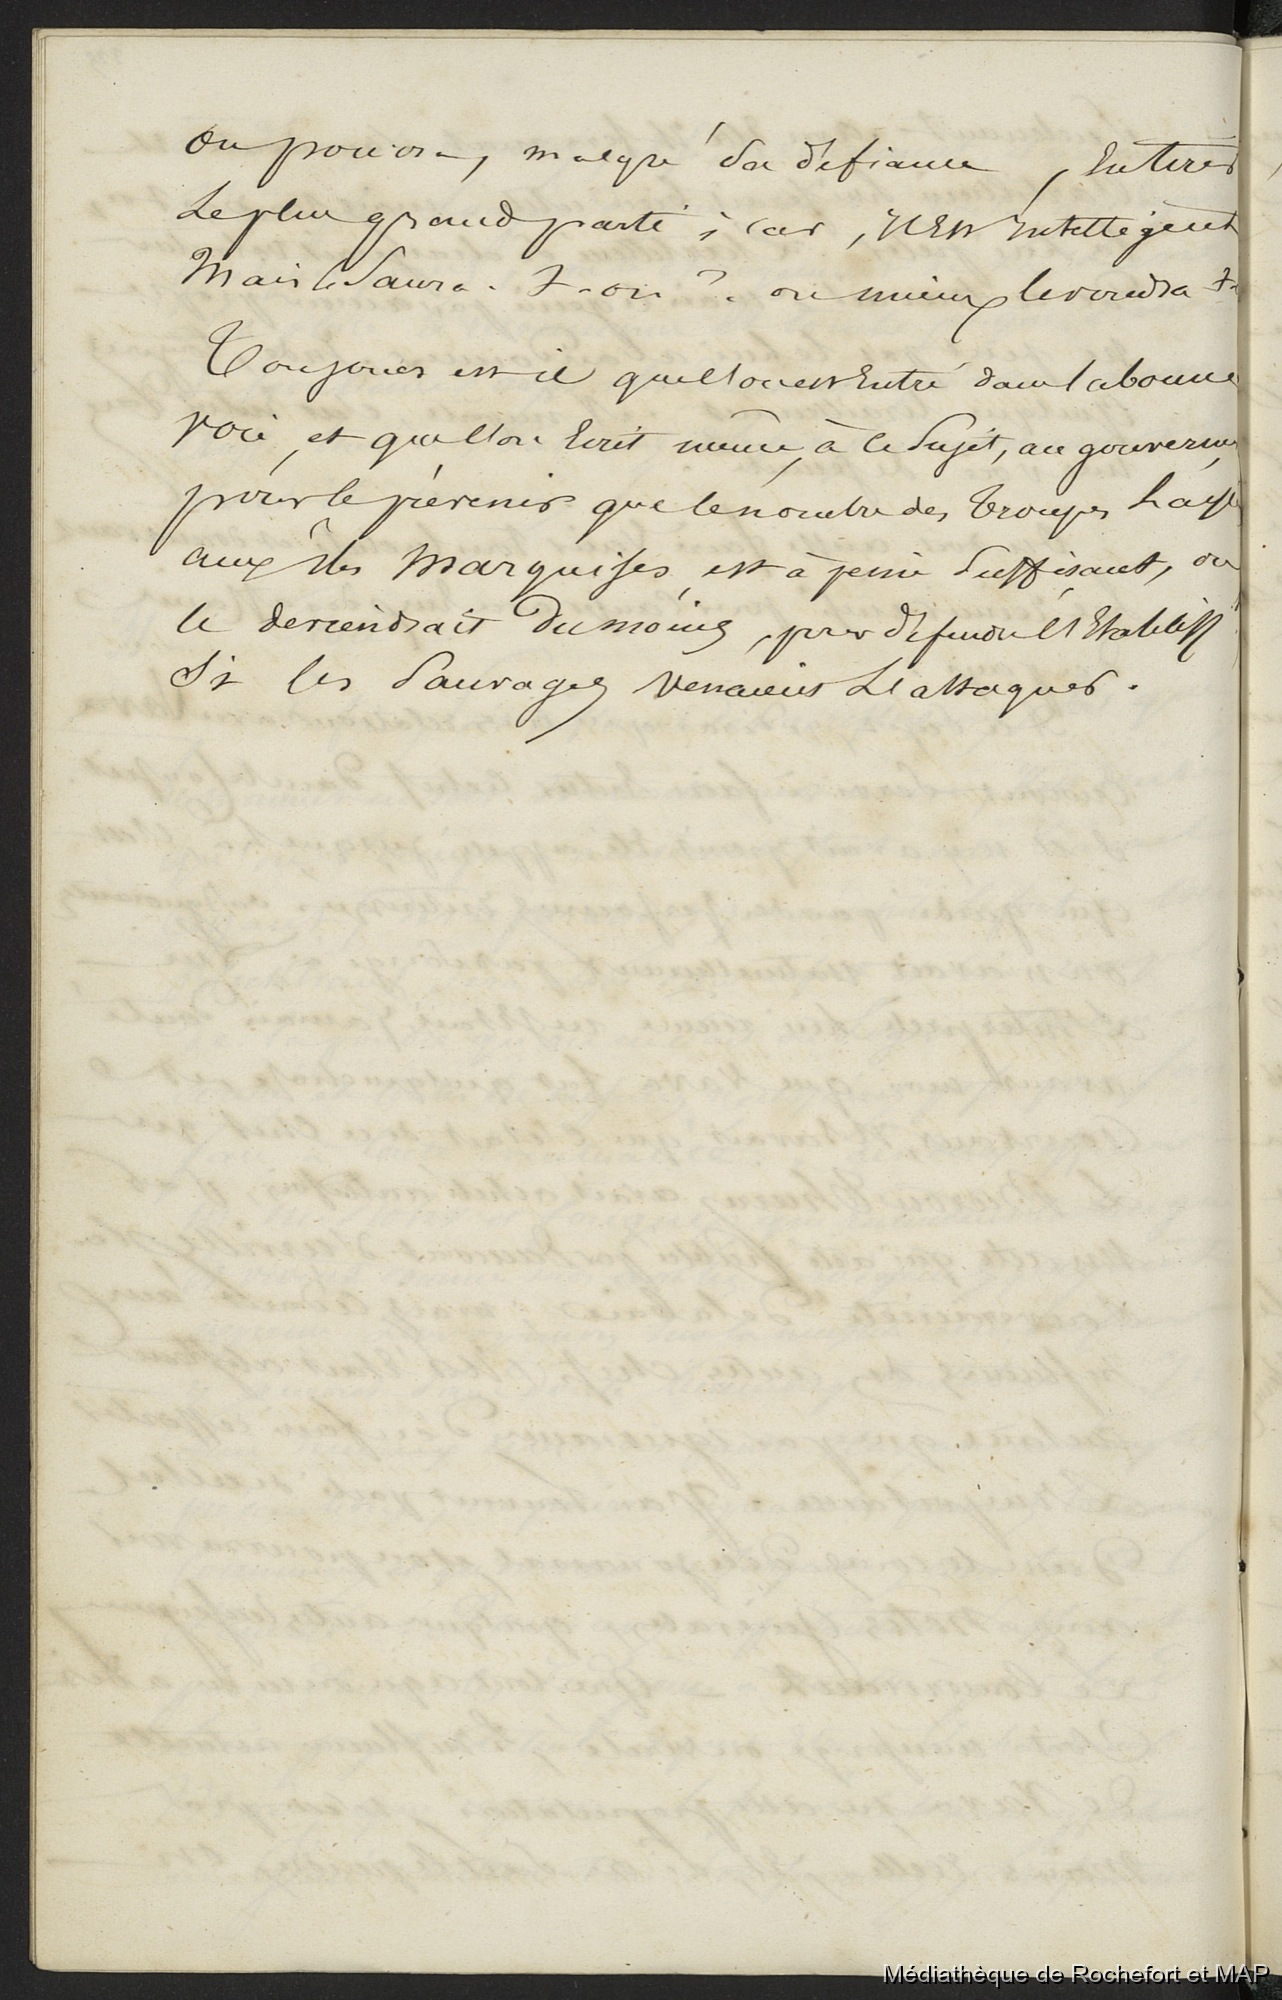 On pourra, malgré sa défiance, En tirer
Le plus grand parti ; car, il Est Intelligent
Mais le saura-t-on ? ou mieux le voudra t-
Toujours est-il que l'on est Entré dans la bonne
voie, et que l'on Ecrit même, à ce sujet, au gouverne
pour le prévenir que le nombre des Troupes
aux îles Marquises, est à peine suffisant, ou
le deviendrait du moins, pour défendre l'Etabliss
Si les Sauvages venaient L'attaquer.
Médiathèque de Rochefort et MAP